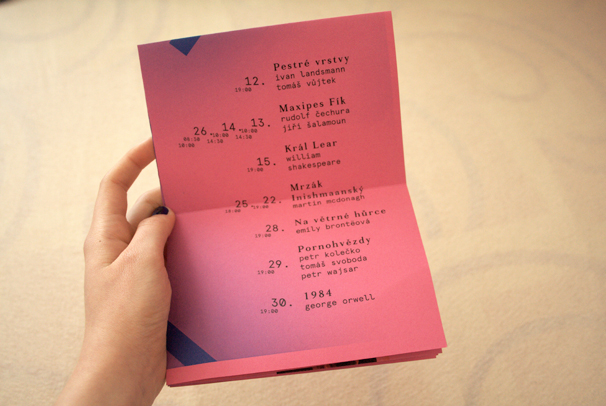 12.
19:00
Pestré vrstvy
ivan landsmann
tomáš vůjtek
26 14 13.
08:30 10:00 10:00
10:00 14:30 14:30
Maxipes Fík
rudolf čechura
jiří šalamoun
15.
19:00
Král Lear
william
shakespeare
25 22.
19:00 19:00
Mrzák
Inishmaanský
martin mcdonagh
28.
19:00
Na větrné hůrce
emily brontëová
29.
19:00
Pornohvězdy
petr kolečko
tomáš svoboda
petr wajsar
30.
19:00
1984
george orwell